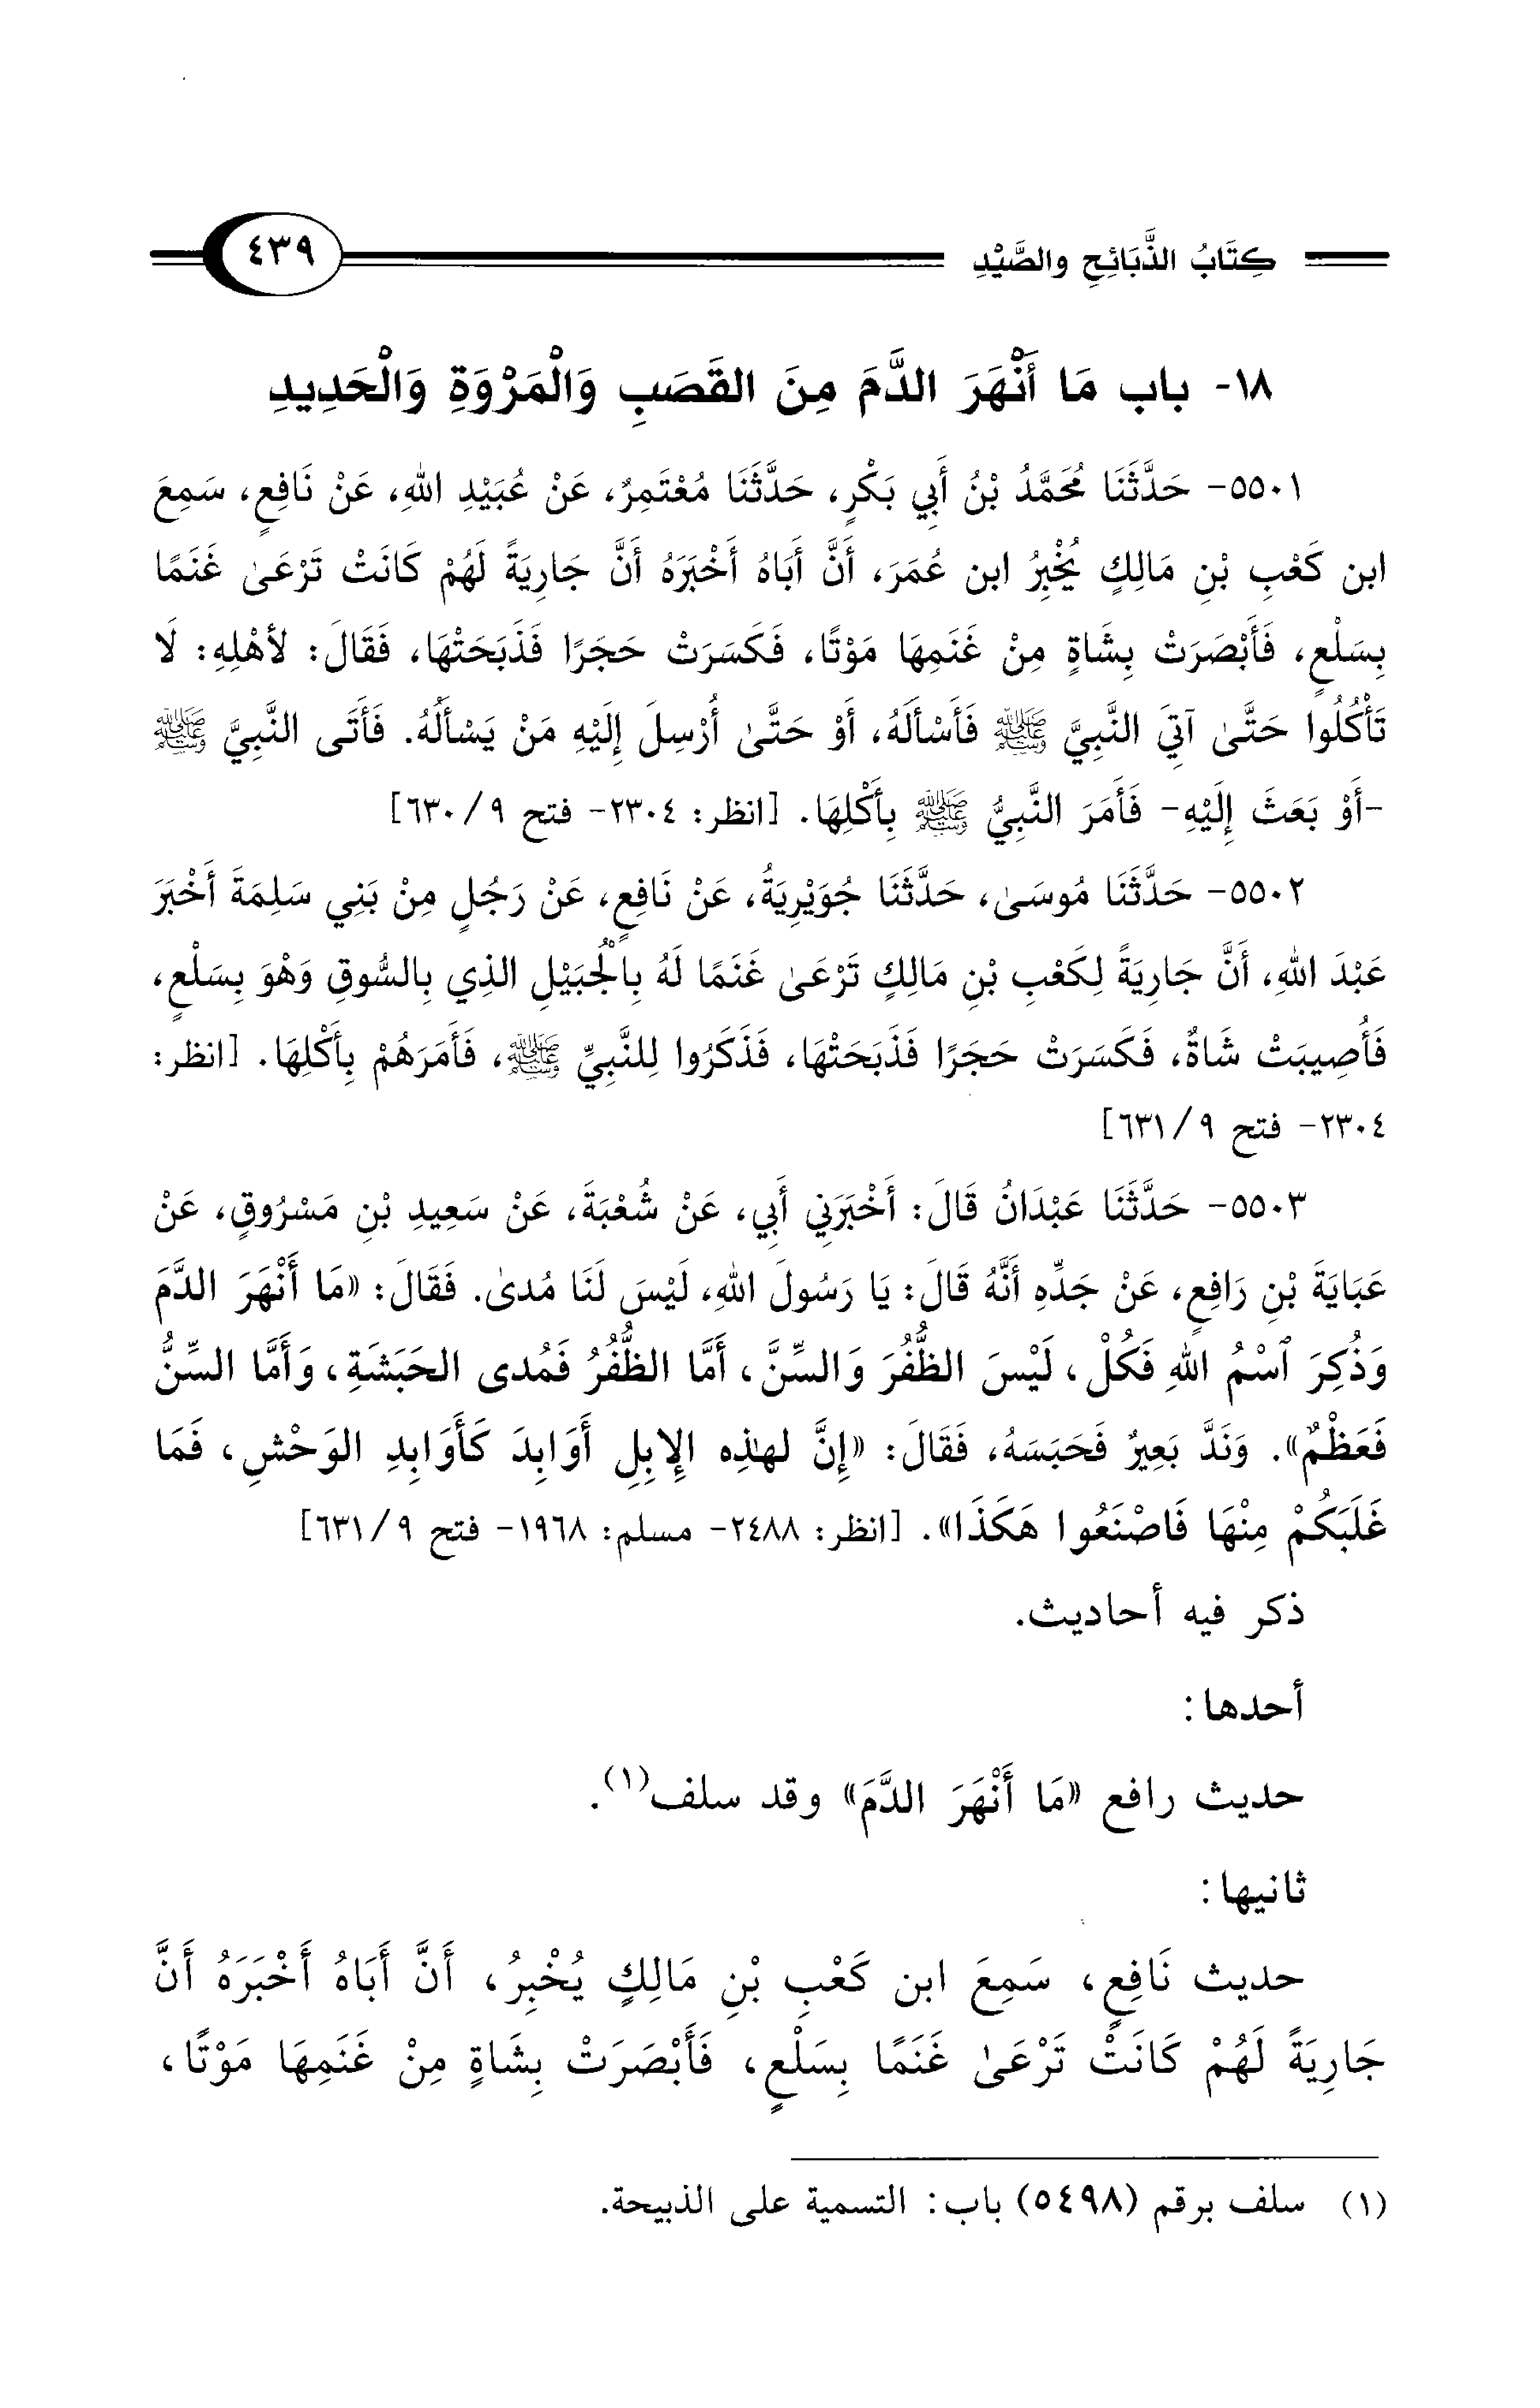 كِتَابُ الذَّبَائِحِ والصَّيْدِ ٤٣٩
١٨- باب مَا أَنْهَرَ الدَّمَ مِنَ القَصَبِ وَالْمَرْوَةِ وَالْحَدِيدِ
٥٥٠١- حَدَّثَنَا مُحَمَّدُ بْنُ أَبِي بَكْرٍ، حَدَّثَنَا مُعْتَمِرٌ، عَنْ عُبَيْدِ اللهِ، عَنْ نَافِعٍ، سَمِعَ
ابن كَعْبِ بْنِ مَالِكٍ يُخْبِرُ ابن عُمَرَ، أَنَّ أَبَاهُ أَخْبَرَهُ أَنَّ جَارِيَةً لَهُمْ كَانَتْ تَرْعَىٰ غَنَمًا
بِسَلْعٍ، فَأَبْصَرَتْ بِشَاةٍ مِنْ غَنَمِهَا مَوْتًا، فَكَسَرَتْ حَجَرًا فَذَبَحَتْهَا، فَقَالَ: لأَهْلِهِ: لَا
تَأْكُلُوا حَتَّىٰ آتِيَ النَّبِيَّ ﷺ فَأَسْأَلَهُ، أَوْ حَتَّىٰ أُرْسِلَ إِلَيْهِ مَنْ يَسْأَلُهُ. فَأَتَى النَّبِيَّ ﷺ
-أَوْ بَعَثَ إِلَيْهِ- فَأَمَرَ النَّبِيُّ ﷺ بِأَكْلِهَا. [انظر: ٢٣٠٤- فتح ٩/ ٦٣٠]
٥٥٠٢- حَدَّثَنَا مُوسَىٰ، حَدَّثَنَا جُوَيْرِيَةُ، عَنْ نَافِعٍ، عَنْ رَجُلٍ مِنْ بَنِي سَلِمَةَ أَخْبَرَ
عَبْدَ اللهِ، أَنَّ جَارِيَةً لِكَعْبِ بْنِ مَالِكٍ تَرْعَىٰ غَنَمًا لَهُ بِالْجُبَيْلِ الذِي بِالسُّوقِ وَهْوَ بِسَلْعٍ،
فَأُصِيبَتْ شَاةٌ، فَكَسَرَتْ حَجَرًا فَذَبَحَتْهَا، فَذَكَرُوا لِلنَّبِيِّ ﷺ، فَأَمَرَهُمْ بِأَكْلِهَا. [انظر:
٢٣٠٤- فتح ٩/ ٦٣١]
٥٥٠٣- حَدَّثَنَا عَبْدَانُ قَالَ: أَخْبَرَنِي أَبِي، عَنْ شُعْبَةَ، عَنْ سَعِيدِ بْنِ مَسْرُوقٍ، عَنْ
عَبَايَةَ بْنِ رَافِعٍ، عَنْ جَدِّهِ أَنَّهُ قَالَ: يَا رَسُولَ اللهِ، لَيْسَ لَنَا مُدىٰ. فَقَالَ: «مَا أَنْهَرَ الدَّمَ
وَذُكِرَ ٱسْمُ اللهِ فَكُلْ، لَيْسَ الظُّفُرَ وَالسِّنَّ، أَمَّا الظُّفُرُ فَمُدى الحَبَشَةِ، وَأَمَّا السِّنُّ
فَعَظْمٌ». وَنَدَّ بَعِيرٌ فَحَبَسَهُ، فَقَالَ: «إِنَّ لهٰذِه الإِبِلِ أَوَابِدَ كَأَوَابِدِ الوَحْشِ، فَمَا
غَلَبَكُمْ مِنْهَا فَاصْنَعُوا هَكَذَا». [انظر: ٢٤٨٨- مسلم: ١٩٦٨- فتح ٩/ ٦٣١]
ذكر فيه أحاديث.
أحدها:
حديث رافع «مَا أَنْهَرَ الدَّمَ» وقد سلف(١).
ثانيها:
حديث نَافِعٍ، سَمِعَ ابن كَعْبِ بْنِ مَالِكٍ يُخْبِرُ، أَنَّ أَبَاهُ أَخْبَرَهُ أَنَّ
جَارِيَةً لَهُمْ كَانَتْ تَرْعَىٰ غَنَمًا بِسَلْعٍ، فَأَبْصَرَتْ بِشَاةٍ مِنْ غَنَمِهَا مَوْتًا،
(١) سلف برقم (٥٤٩٨) باب: التسمية على الذبيحة.